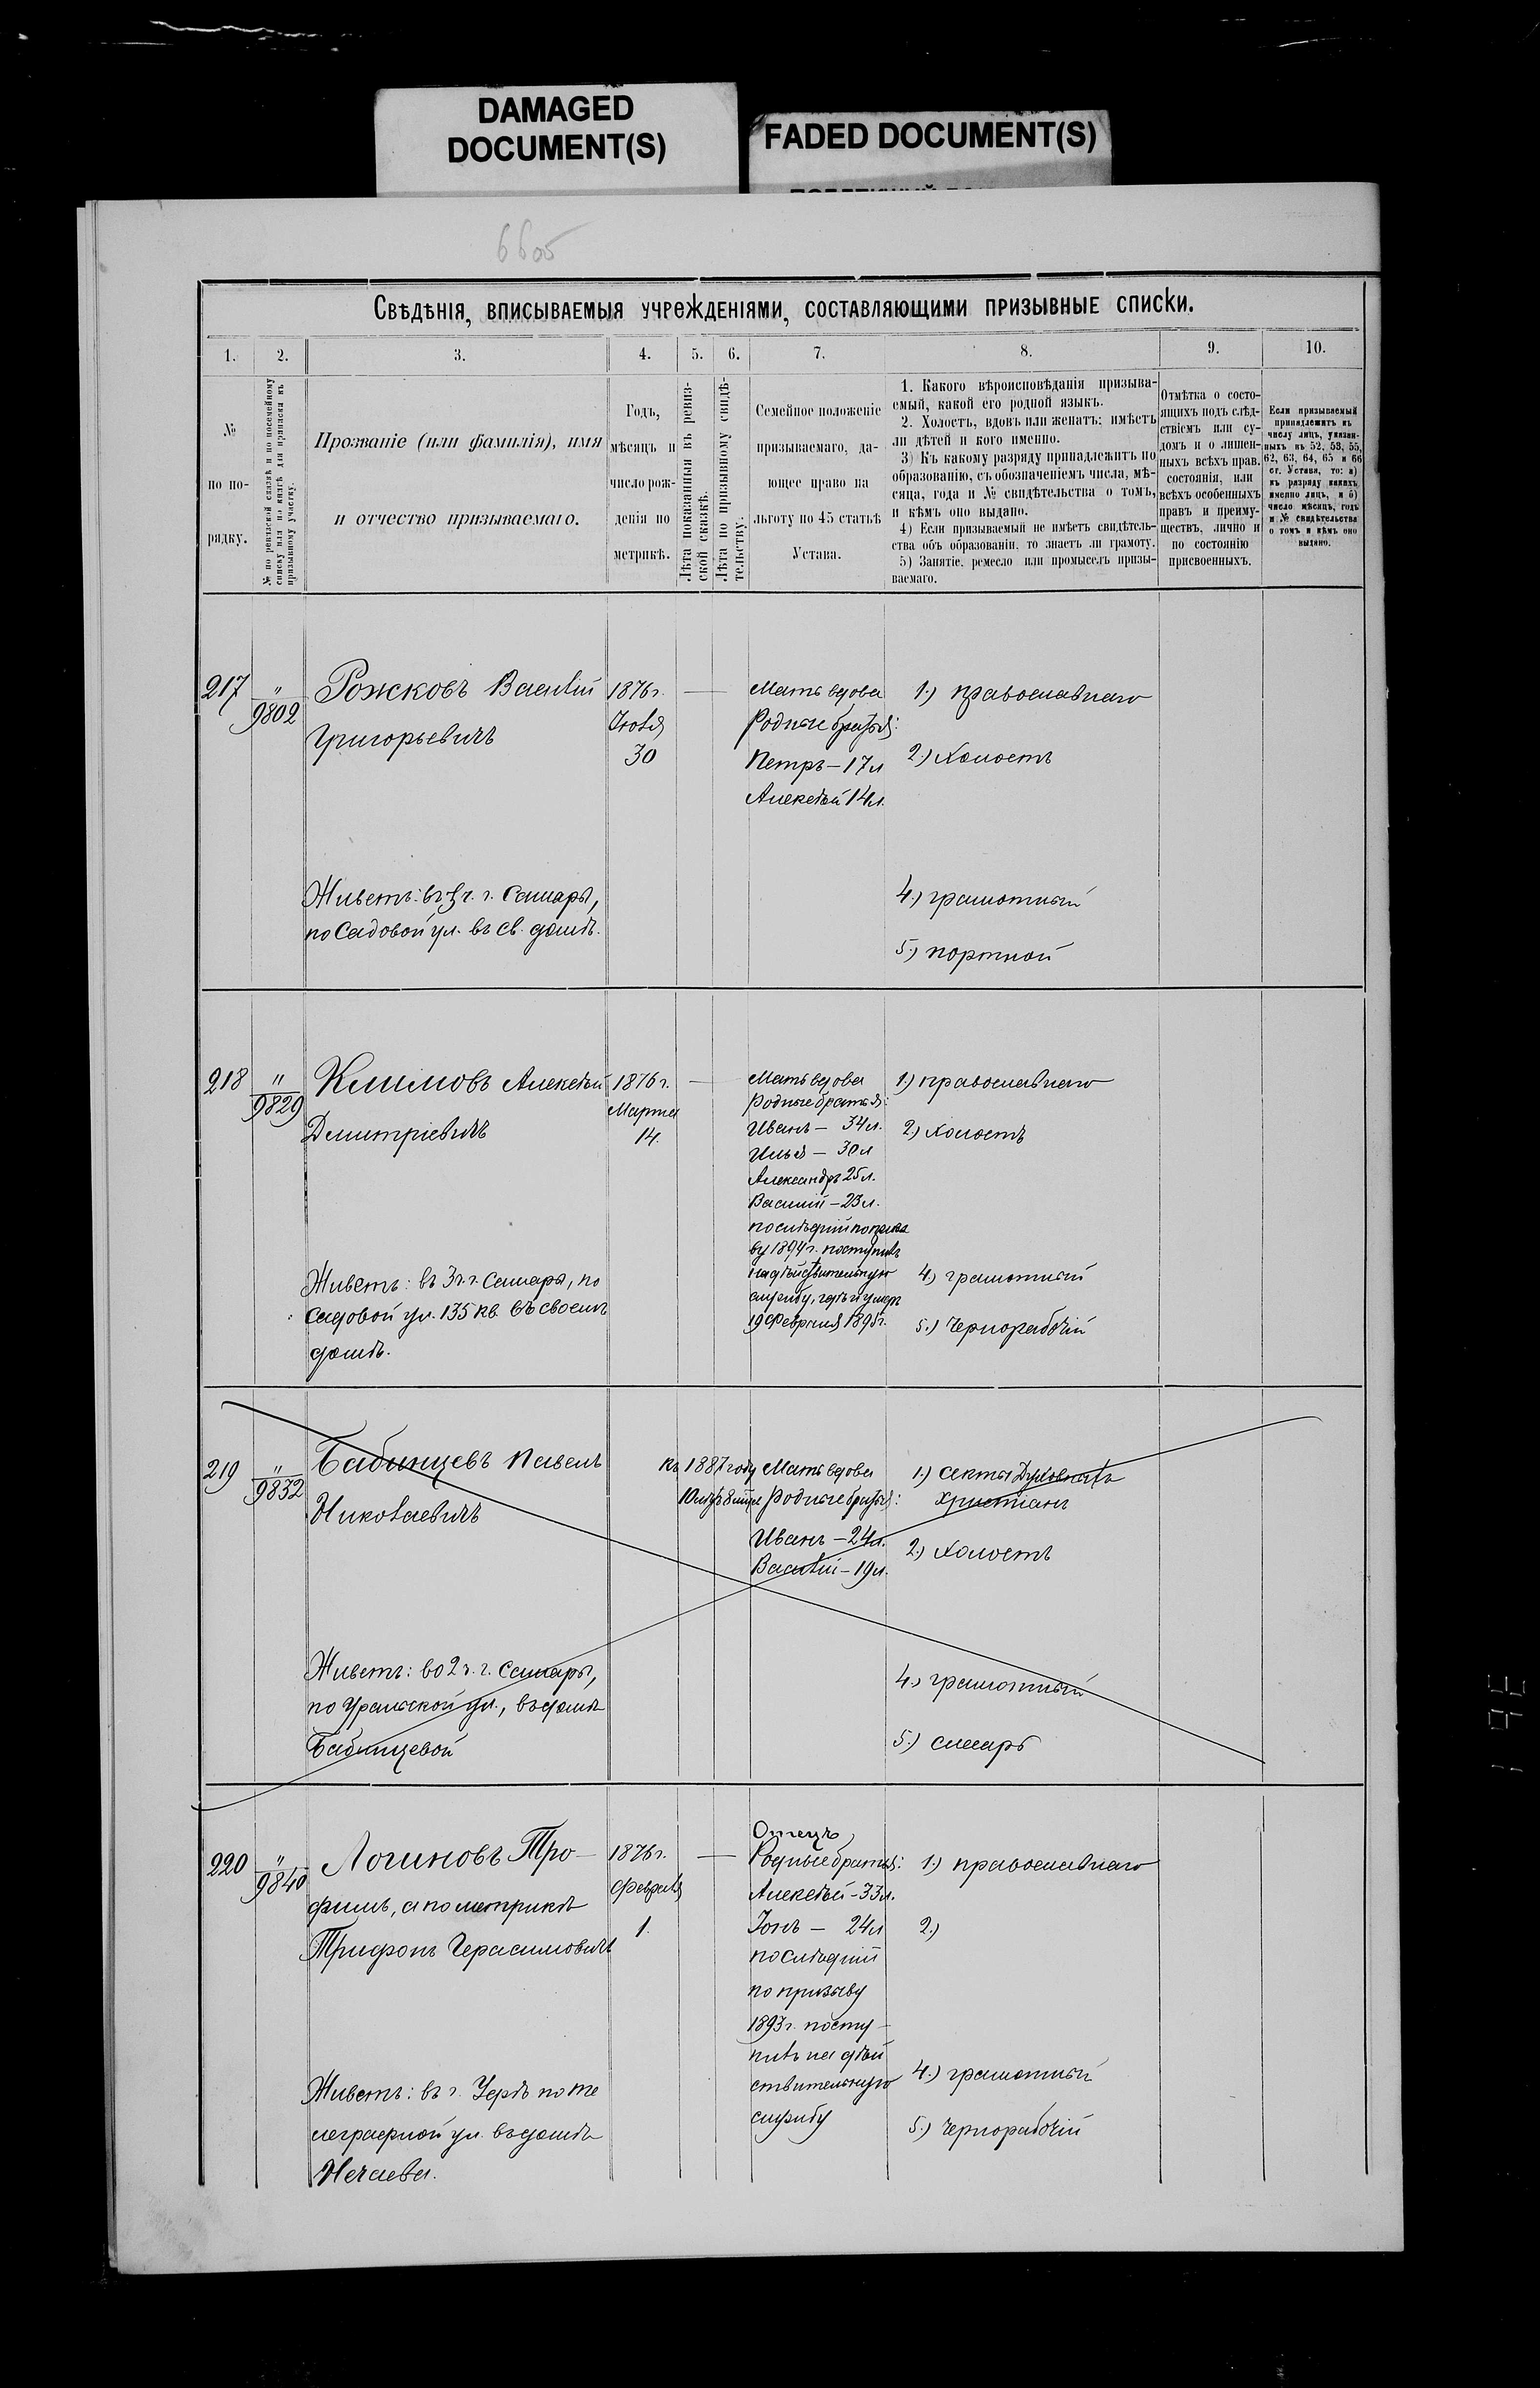 DAMAGED
DOCUMENT(S)
FADED DOCUMENT(S)
66об
Свѣдѣнія, вписываемыя учрежденіями, составляющими призывные списки.
1. 2. 3. 4. 5. 6. 7. 8. 9. 10.
№
по по-
рядку.
№ по ревизской сказкѣ и по посемейному
списку или по книгѣ для приписки къ
призывному участку.
Прозваніе (или фамилія), имя
и отчество призываемаго.
Годъ,
мѣсяцъ и
число рож-
денія по
метрикѣ.
Лѣта показанныя въ ревиз-
ской сказкѣ.
Лѣта по призывному свидѣ-
тельству.
Семейное положеніе
призываемаго, да-
ющее право на
льготу по 45 статьѣ
Устава.
1. Какого вѣроисповѣданія призыва-
емый, какой его родной языкъ.
2. Холостъ, вдовъ или женатъ; имѣетъ
ли дѣтей и кого именно.
3) Къ какому разряду принадлежитъ по
образованію, съ обозначеніемъ числа, мѣ-
сяца, года и № свидѣтельства о томъ,
и кѣмъ оно выдано.
4) Если призываемый не имѣетъ свидѣтель-
ства объ образованіи, то знаетъ ли грамоту.
5) Занятіе, ремесло или промыселъ призы-
ваемаго.
Отмѣтка о состо-
ящихъ подъ слѣд-
ствіемъ или су-
домъ и о лишен-
ныхъ всѣхъ прав.
состоянія, или
всѣхъ особенныхъ
правъ и преиму-
ществъ, лично и
по состоянію
присвоенныхъ.
Если призываемый
принадлежитъ къ
числу лицъ, указан-
ныхъ въ 52, 53, 55,
62, 63, 64, 65 и 66
ст. Устава, то: а)
къ разряду какихъ
именно лицъ, и б)
число мѣсяцъ, годъ
и № свидѣтельства
о томъ и кѣмъ оно
выдано.
217
"
9802
Рожковъ Василій
Григорьевичъ
Живетъ: въ 3 ч. г. Самары,
по Садовой ул. въ св. домѣ.
1876 г.
Іюля
30
Мать вдова
Родные братья:
Петръ – 17 л
Алексѣй 14 л.
1.) православнаго
2.) Холостъ
4.) грамотный
5.) портной
218
"
9829
Климовъ Алексѣй
Дмитріевичъ
Живетъ: въ 3 ч. г. Самары, по
Садовой ул. 135 кв. въ своемъ
домѣ.
1876 г.
Марта
14.
Мать вдова
Родные братья:
Иванъ – 34 л.
Илья – 30 л
Александръ 25 л.
Василій – 23 л.
послѣдній по призы
ву 1894 г. поступилъ
на дѣйствительную
службу, гдѣ и умеръ
19 Февраля 1895 г.
1.) православнаго
2.) Холостъ
4.) грамотный
5.) Чернорабочій
219
"
9832
Бабинцевъ Павелъ
Николаевичъ
Живетъ: во 2 ч. г. Самары,
по Уральской ул., въ домѣ
Бабинцевой
къ 1887 году
Мать вдова
Родные братья:
Иванъ – 24 л.
Василій – 19 л.
1.) секты Духовныхъ
Христіанъ
2.) Холостъ
4.) грамотный
5.) слесарь
220
"
9840
Логиновъ Тро-
фимъ, а по метрикѣ
Трифонъ Герасимовичъ
Живетъ: въ г. Уфѣ по Те
леграфной ул. въ домѣ
Нечаева.
1876 г.
Февраля
1.
Отецъ,
Родные братья:
Алексѣй – 33 л.
Іонъ – 24 л
послѣдній
по призыву
1893 г. посту-
пилъ на дѣй
ствительную
службу
1.) православнаго
2.)
4.) грамотный
5.) Чернорабочій